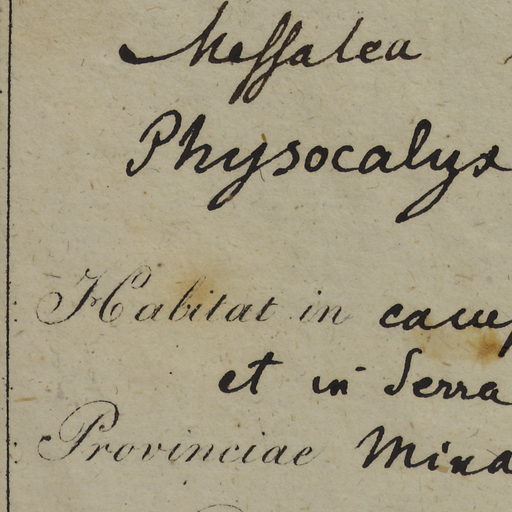 Messalea
Physocalyx
Habitat in camp
et in Serra
Provinciae Mina